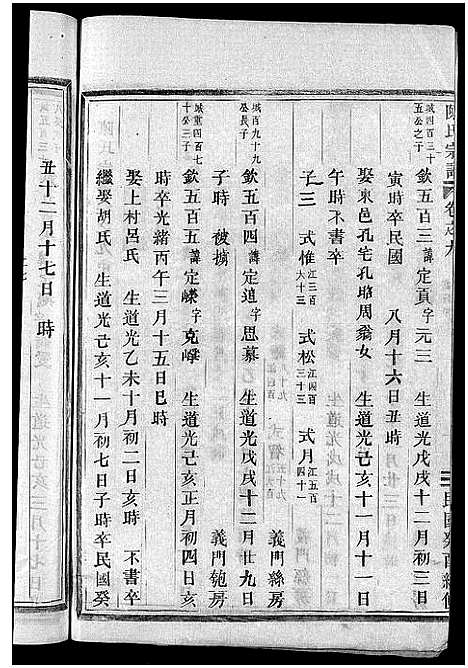 陳氏宗譜 卷之九 民國癸酉續修
城四百三十
五公之子
欽五百三 諱定貢 字元三 生道光戊戌十二月初三日
寅時卒民國 八月十六日丑時
娶東邑孔宅孔昭周翁女 生道光己亥十一月十一日
午時不書卒
子三 式惟 江三百大十三 式松 江四百三十三 式月 江五百四十一 義門絲房
城百九十九
公長子
欽五百四 諱定追 字思慕 生道光戊戌十二月廿九日
子時 被擄 義門匏房
城童四百七
十公三子
欽五百五 諱定嶸 字克㟲 生道光己亥正月初四日亥
時卒光緒丙午三月十五日巳時
娶上村呂氏 生道光乙未十月初二日亥時 不書卒
繼娶胡氏 生道光己亥十一月初七日子時卒民國癸
丑十二月十七日 時